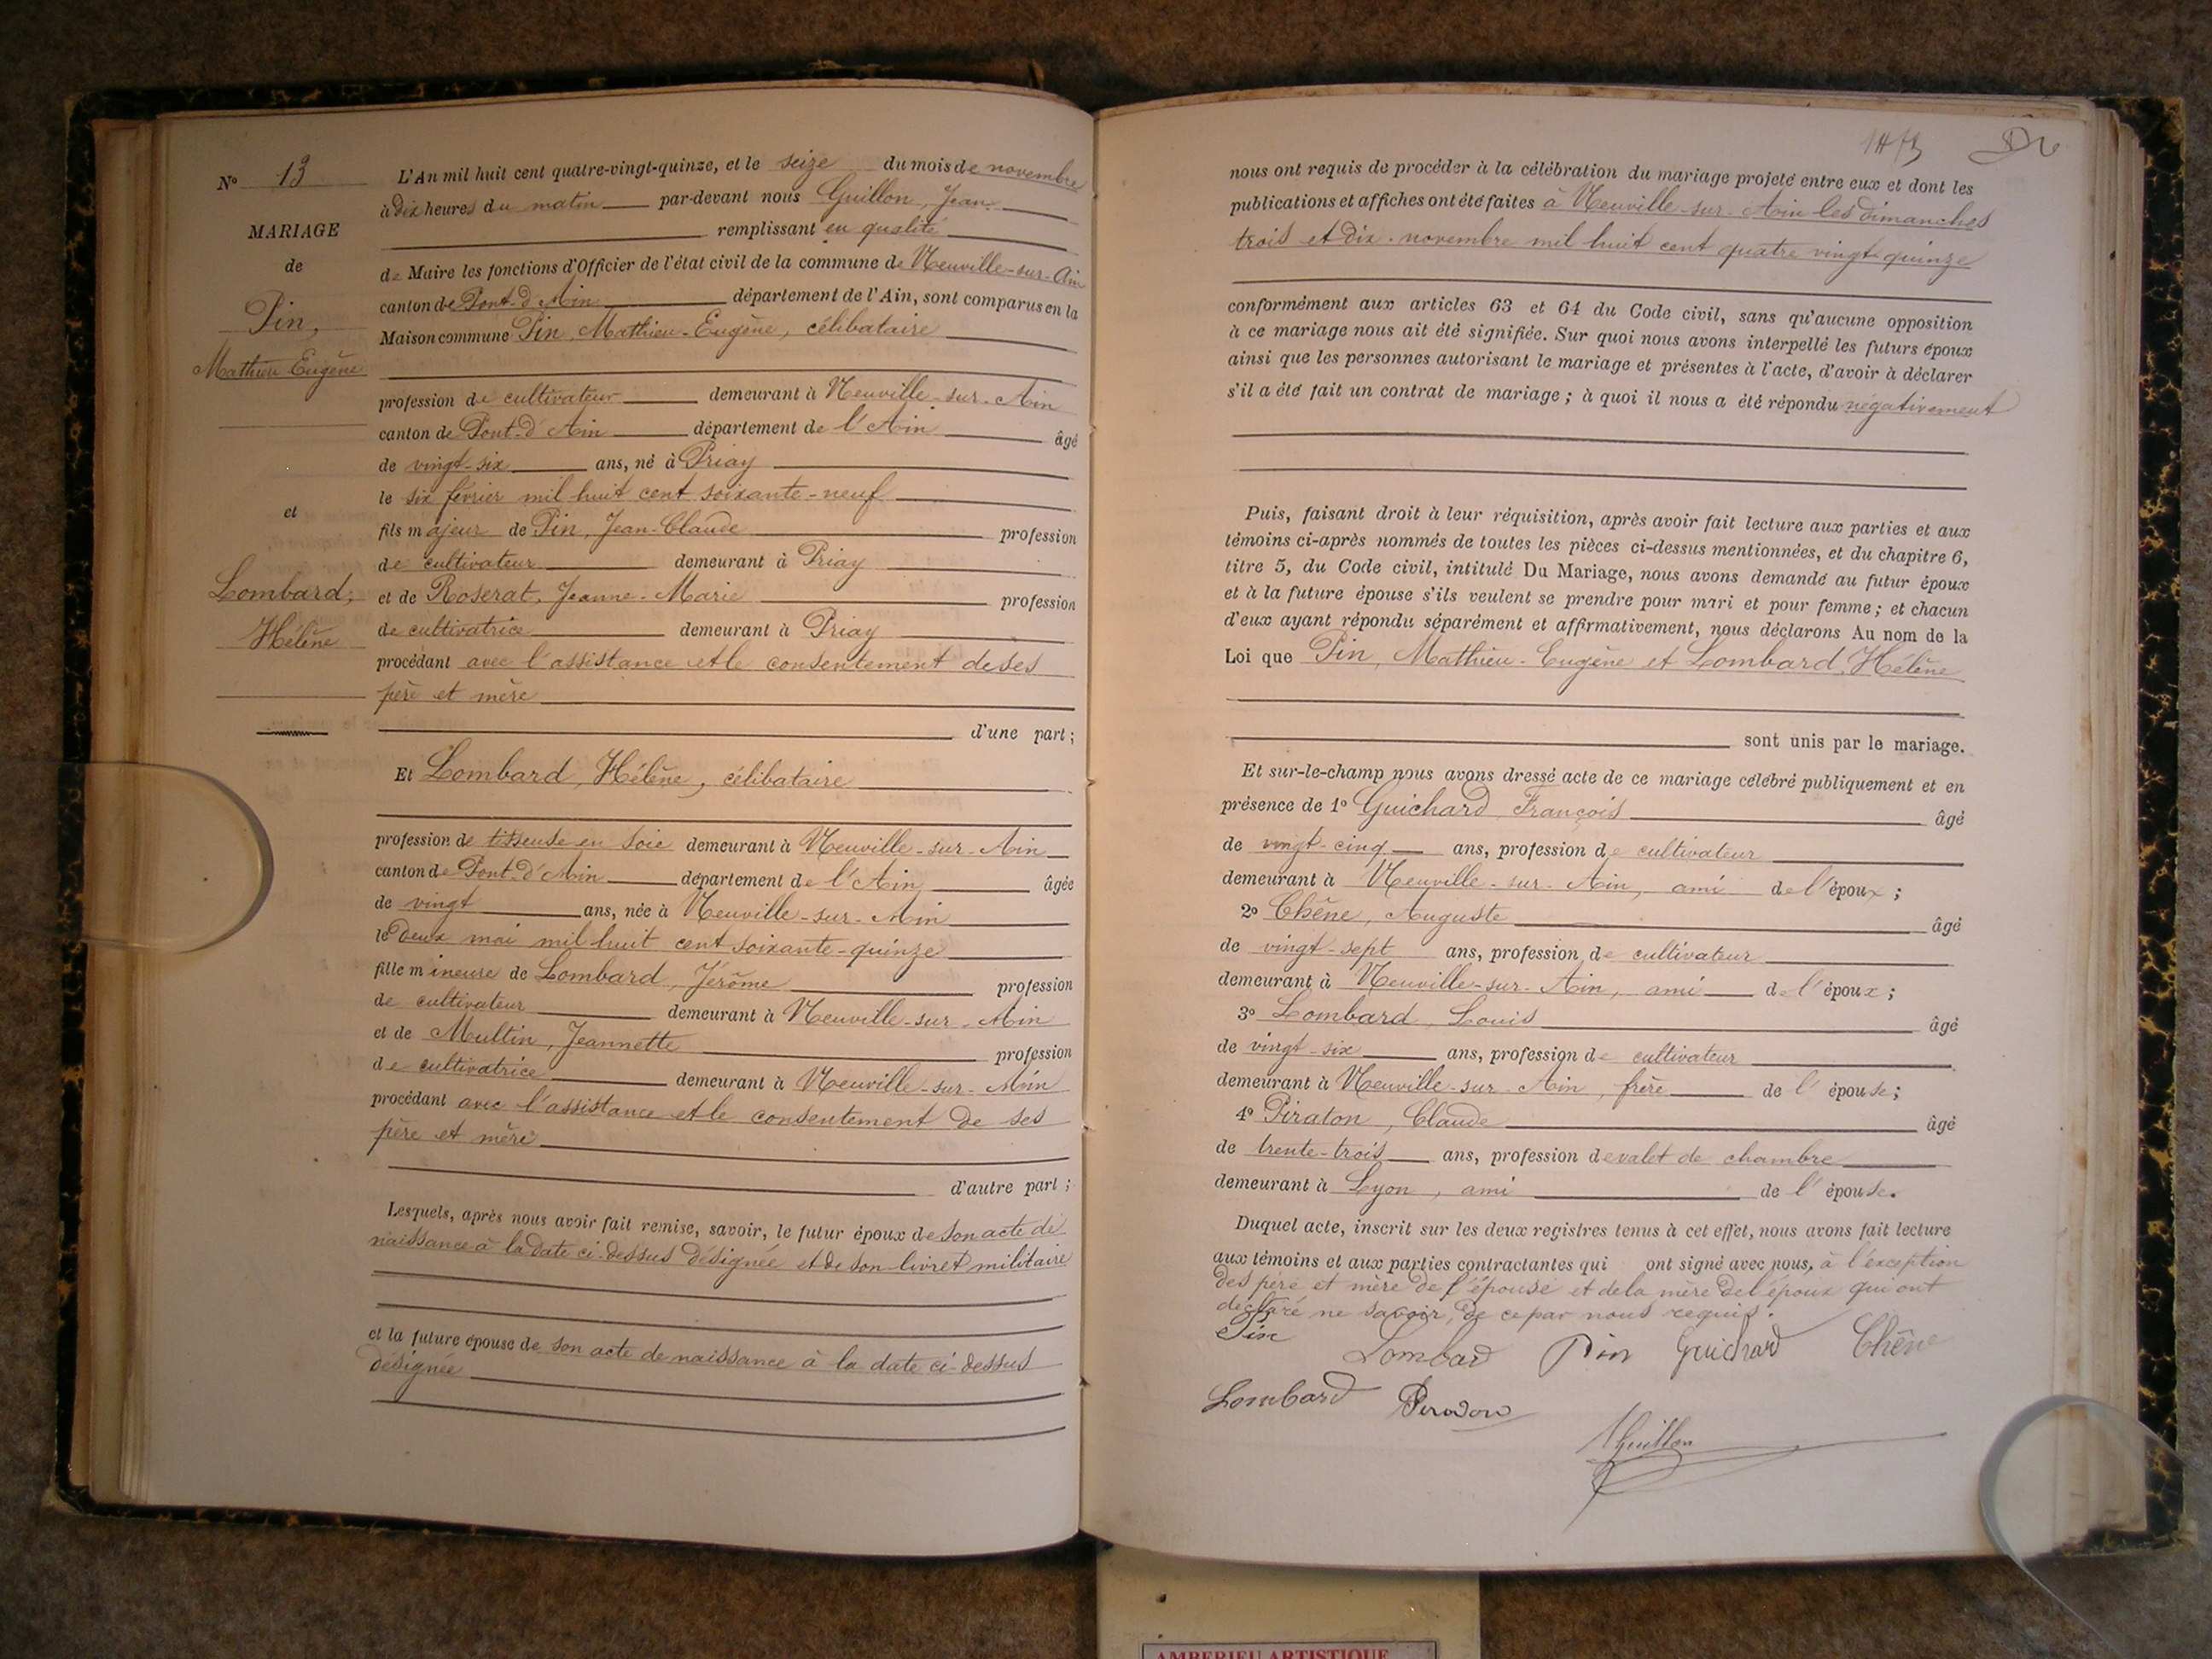 N° 13
MARIAGE
de
Pin,
Mathieu Eugène
et
Lombard,
Hélène
L'An mil huit cent quatre-vingt-quinze, et le seize du mois de novembre
à dix heures du matin par-devant nous Guillon, Jean
remplissant en qualité
de Maire les fonctions d'Officier de l'état civil de la commune de Neuville-sur-Ain
canton de Pont-d'Ain département de l'Ain, sont comparus en la
Maison commune Pin, Mathieu-Eugène, célibataire
profession de cultivateur demeurant à Neuville-sur-Ain
canton de Pont-d'Ain département de l'Ain âgé
de vingt-six ans, né à Priay
le six février mil huit cent soixante-neuf
fils majeur de Pin, Jean-Claude profession
de cultivateur demeurant à Priay
et de Roserat, Jeanne-Marie profession
de cultivatrice demeurant à Priay
procédant avec l'assistance et le consentement de ses
père et mère
d'une part;
Et Lombard, Hélène, célibataire
profession de tisseuse en soie demeurant à Neuville-sur-Ain
canton de Pont-d'Ain département de l'Ain âgée
de vingt ans, née à Neuville-sur-Ain
le deux mai mil huit cent soixante-quinze
fille mineure de Lombard, Jérôme profession
de cultivateur demeurant à Neuville-sur-Ain
et de Multin, Jeannette profession
de cultivatrice demeurant à Neuville-sur-Ain
procédant avec l'assistance et le consentement de ses
père et mère
d'autre part;
Lesquels, après nous avoir fait remise, savoir, le futur époux de son acte de
naissance à la date ci-dessus désignée et de son livret militaire
et la future épouse de son acte de naissance à la date ci-dessus
désignée
nous ont requis de procéder à la célébration du mariage projeté entre eux et dont les
publications et affiches ont été faites à Neuville-sur-Ain les dimanches
trois et dix novembre mil huit cent quatre vingt quinze
conformément aux articles 63 et 64 du Code civil, sans qu'aucune opposition
à ce mariage nous ait été signifiée. Sur quoi nous avons interpellé les futurs époux
ainsi que les personnes autorisant le mariage et présentes à l'acte, d'avoir à déclarer
s'il a été fait un contrat de mariage; à quoi il nous a été répondu négativement
Puis, faisant droit à leur réquisition, après avoir fait lecture aux parties et aux
témoins ci-après nommés de toutes les pièces ci-dessus mentionnées, et du chapitre 6,
titre 5, du Code civil, intitulé Du Mariage, nous avons demandé au futur époux
et à la future épouse s'ils veulent se prendre pour mari et pour femme; et chacun
d'eux ayant répondu séparément et affirmativement, nous déclarons Au nom de la
Loi que Pin, Mathieu-Eugène et Lombard, Hélène
sont unis par le mariage.
Et sur-le-champ nous avons dressé acte de ce mariage célébré publiquement et en
présence de 1° Guichard François âgé
de vingt-cinq ans, profession de cultivateur
demeurant à Neuville-sur-Ain, ami de l'époux;
2° Chêne, Auguste âgé
de vingt-sept ans, profession de cultivateur
demeurant à Neuville-sur-Ain, ami de l'époux;
3° Lombard, Louis âgé
de vingt-six ans, profession de cultivateur
demeurant à Neuville-sur-Ain, frère de l'épouse;
4° Piraton, Claude âgé
de trente-trois ans, profession de valet de chambre
demeurant à Lyon, ami de l'épouse.
Duquel acte, inscrit sur les deux registres tenus à cet effet, nous avons fait lecture
aux témoins et aux parties contractantes qui ont signé avec nous, à l'exception
des père et mère de l'épouse et de la mère de l'époux qui ont
déclaré ne savoir, de ce par nous requis.
Pin Lombard Pin Guichard Chêne
Lombard
Guillon
AMBERIEU ARTISTIQUE